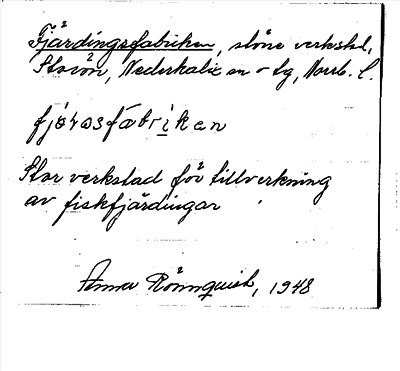 Fjärdingsfabriken, större verkstad,
Storön, Nederkalix sn - tg, Norrb. l.
fjø̄ɾasfabriken
Stor verkstad för tillverkning
av fiskfjärdingar
Anna Rönnquist, 1948